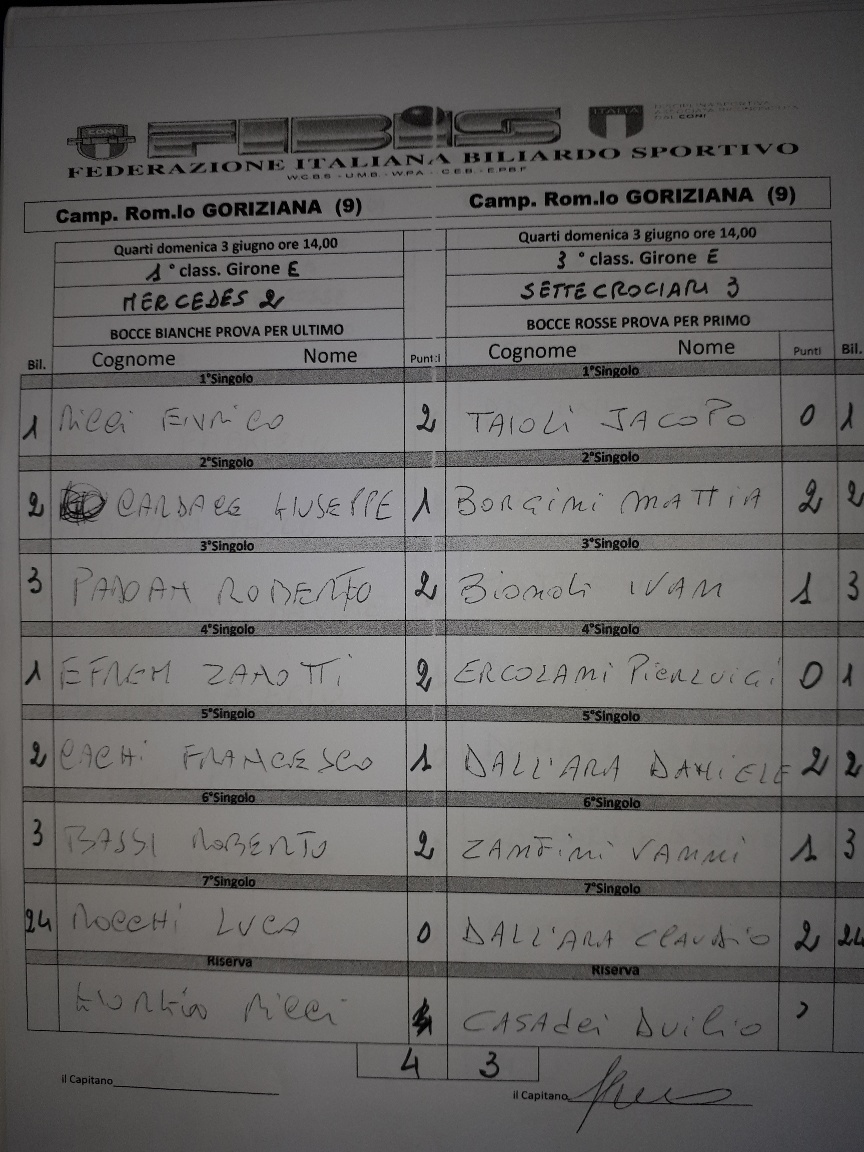 CONI FIBiS ITALIA
DISCIPLINA SPORTIVA
ASSOCIATA RICONOSCIUTA
DAL CONI
FEDERAZIONE ITALIANA BILIARDO SPORTIVO
W.C.B.S - U.M.B. - W.P.A. - C.E.B. - E.P.B.F
Camp. Rom.lo GORIZIANA (9) Camp. Rom.lo GORIZIANA (9)
Quarti domenica 3 giugno ore 14,00 Quarti domenica 3 giugno ore 14,00
1° class. Girone E 3° class. Girone E
MERCEDES 2 SETTECROCIARI 3
BOCCE BIANCHE PROVA PER ULTIMO BOCCE ROSSE PROVA PER PRIMO
Bil. Cognome Nome Punti Cognome Nome Punti Bil.
1°Singolo 1°Singolo
1 RICCI ENRICO 2 TAIOLI JACOPO 0 1
2°Singolo 2°Singolo
2 CARDACE GIUSEPPE 1 BORGINI MATTIA 2 2
3°Singolo 3°Singolo
3 PADOAN ROBERTO 2 BIONDI IVAN 1 3
4°Singolo 4°Singolo
1 EFREM ZANOTTI 2 ERCOLANI PIERLUIGI 0 1
5°Singolo 5°Singolo
2 CACHI FRANCESCO 1 DALL'ARA DANIELE 2 2
6°Singolo 6°Singolo
3 BASSI ROBERTO 2 ZANFINI VANNI 1 3
7°Singolo 7°Singolo
24 ROCCHI LUCA 0 DALL'ARA CLAUDIO 2 24
Riserva Riserva
GIORGIO RICCI CASADEI DUILIO
4 3
il Capitano il Capitano